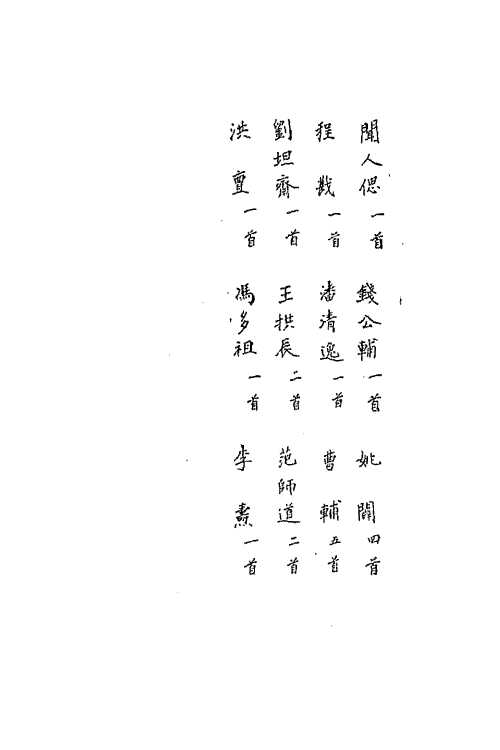 聞人偲一首　錢公輔一首　姚闢四首
程戡一首　潘清逸一首　曹輔五首
劉坦齋一首　王拱辰二首　范師道二首
洪亶一首　馮多祖一首　李燾一首